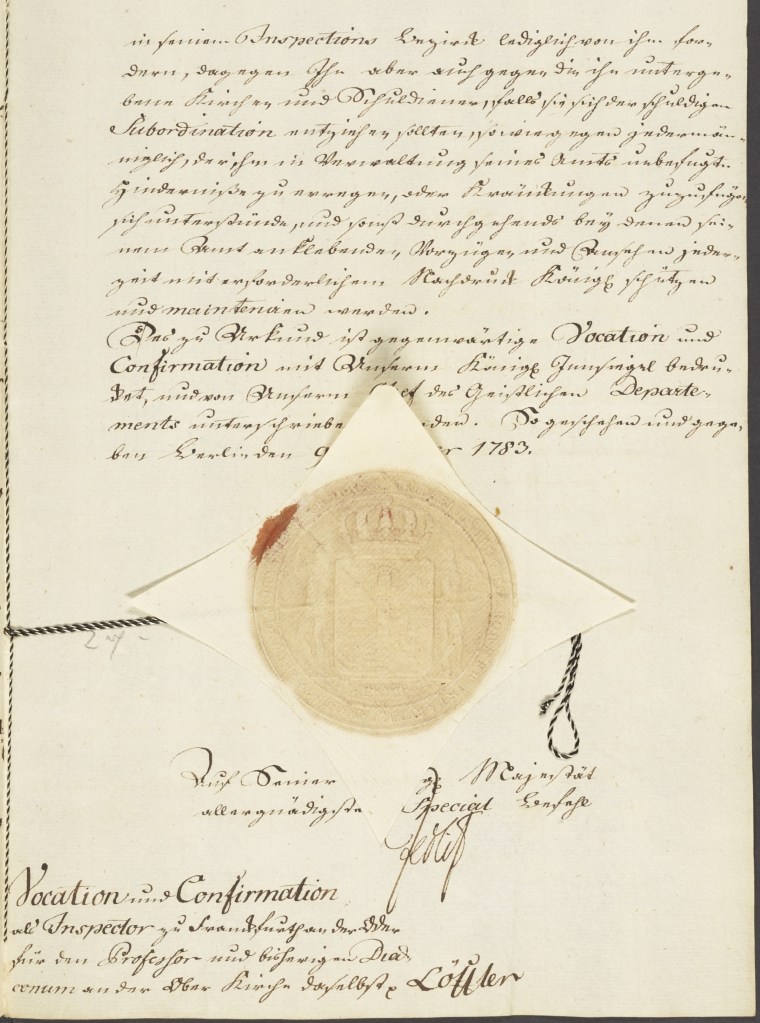 in seinem Inspections Bezirk lediglich von ihm for-
dern, dagegen Ihn aber auch gegen die ihm unterge-
bene Kirchen und Schuldiener, falls sie sich der schuldigen
Subordination entziehen sollten, sowie gegen jedermän-
niglich, der ihm in Verwaltung seines Amts unbefugte
Hinderniße zu erregen, oder Kränkungen zuzufügen
sich unterstünde, und sonst durchgehends bey denen sei-
nem Amt anklebenden Vorzügen und Ansehen jeder-
zeit mit erforderlichem Nachdruck Königl. schützen
und mainteniren werden.
Des zu Urkund ist gegenwärtige Vocation und
Confirmation mit Unserm Königl. Innsiegel bedru-
cket, und von Unserm Chef des Geistlichen Departe-
ments unterschrieben den. So geschehen und gege-
ben Berlin den 9 r 1783.
24-
Auf Seiner Majestät
allergnädigsten Special Befehl
Zedlitz
Vocation und Confirmation
als Inspector zu Franckfurth an der Oder
für den Professor und bisherigen Dia-
conum an der Ober Kirche daselbst Löffler